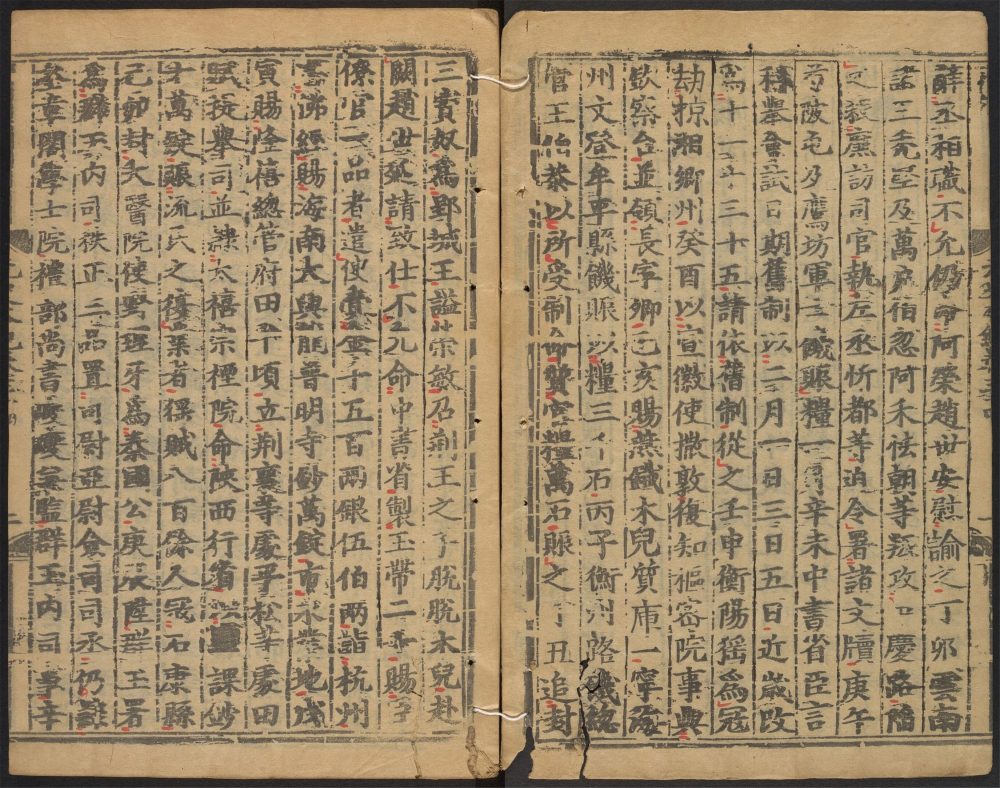 辭丞相職不允仍命阿榮趙世安慰諭之丁卯雲南
諸王禿堅及萬戶伯忽阿禾怯朝等叛攻中慶路陷
之殺廉訪司官執左丞忻都等迫令署諸文牘庚午
芍陂屯及鷹坊軍士饑賑糧一月辛未中書省臣言
科舉會試日期舊制以二月一日三日五日近歲改
為十一十三十五請依舊制從之壬申衡陽猺為冦
劫掠湘鄉州癸酉以宣徽使撒敦復知樞密院事與
欽察台並領長寧卿乙亥賜燕鐵木兒質庫一寧海
州文登牟平縣饑賑以糧三千石丙子衡州路饑總
管王伯恭以所受制命質官糧萬石賑之丁丑追封
三寶奴為郢城王謚榮敏乃荆王之子脫脫木兒赴
闕趙世延請致仕不允命中書省製玉帶二十賜
僚官一品者遣使賫金千五百兩銀伍伯兩詣杭州
書佛經賜海南大興龍普明寺鈔萬錠市永業地戊
寅賜隆禧總管府田千頃立荆襄等處平松等處田
賦提舉司並隸太禧宗禋院命陝西行省以鹽課鈔
十萬錠賑流民之復業者猺賊八百餘人冦石康縣
己卯封太醫院使野理牙為秦國公庚辰陞群玉署
為群玉內司秩正三品置司尉亞尉僉司司丞仍隸
奎章閣學士院禮部尚書巙巙兼監群玉內司事辛